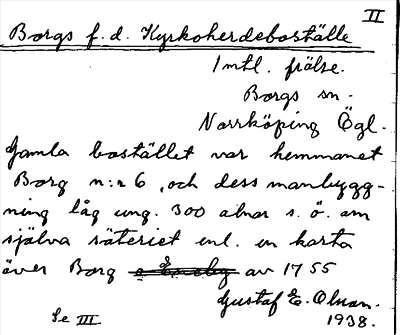 II
Borgs f. d. Kyrkoherdeboställe
1 mtl. frälse.
Borgs sn.
Norrköping Ögl.
Gamla bostället var hemmanet
Borg n:r 6, och dess manbygg-
ning låg ung. 300 alnar s. ö. om
själva säteriet enl. en karta
över Borg e Eneby av 1755
Gustaf E. Olsson.
Se III 1938.